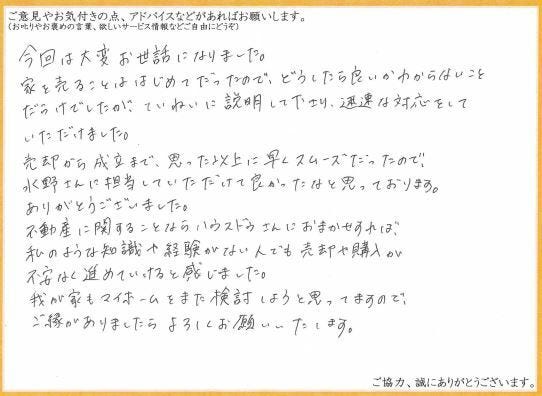 ご意見やお気付きの点、アドバイスなどがあればお願いします。
(お叱りやお褒めの言葉、欲しいサービス情報などご自由にどうぞ)
今回は大変お世話になりました。
家を売ることははじめてだったので、どうしたら良いかわからないこと
だらけでしたが、ていねいに説明して下さり、迅速な対応をして
いただけました。
売却から成立まで、思った以上に早くスムーズだったので、
水野さんに担当していただけて良かったなと思っております。
ありがとうございました。
不動産に関することならハウスドゥさんにおまかせすれば、
私のような知識や経験がない人でも売却や購入が
不安なく進めていけると感じました。
我が家もマイホームをまた検討しようと思ってますので、
ご縁がありましたらよろしくお願いいたします。
ご協力、誠にありがとうございます。